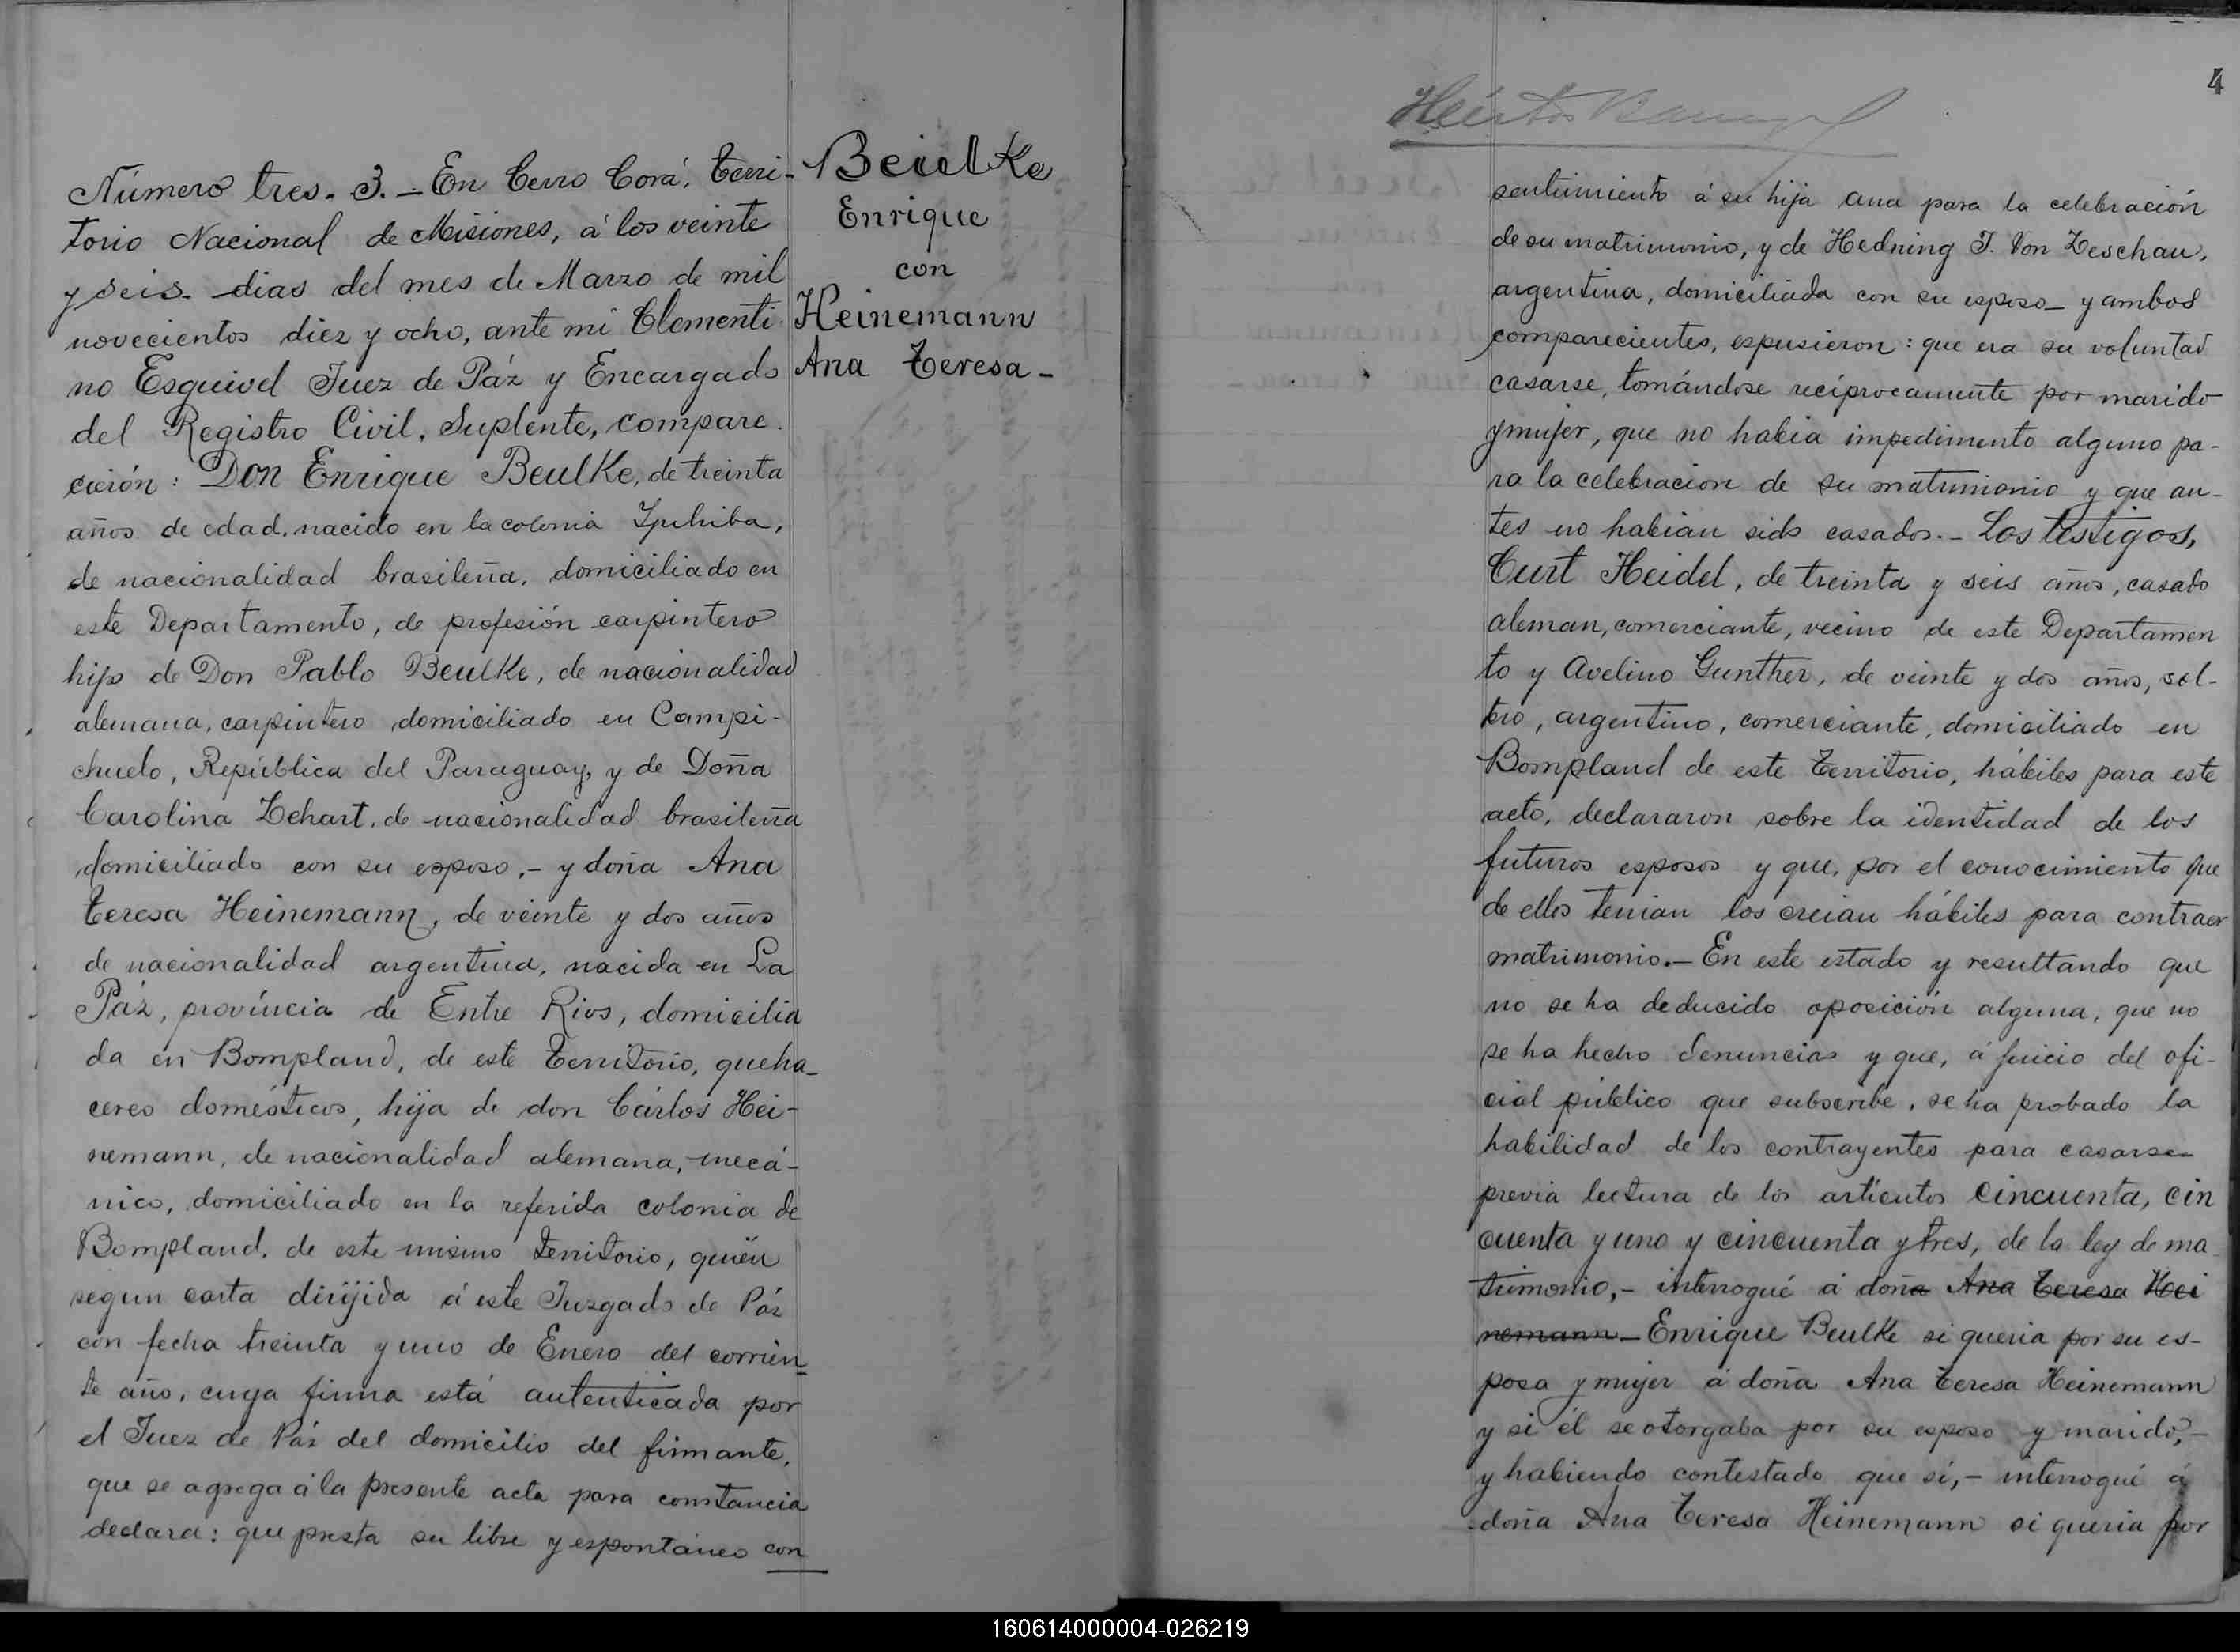 Número tres. 3. — En Cerro Corá, terri-
torio Nacional de Misiones, á los veinte
y seis dias del mes de Marzo de mil
novecientos diez y ocho, ante mi Clementi
no Esquivel Juez de Páz y Encargado
del Registro Civil, Suplente, compare
ción: Don Enrique Beulke, de treinta
años de edad, nacido en la colonia
de nacionalidad brasileña, domiciliado en
este Departamento, de profesión carpintero
hijo de Don Pablo Beulke, de nacionalidad
alemana, carpintero domiciliado en Campi-
chuelo, República del Paraguay, y de Doña
Carolina Zehart, de nacionalidad brasileña
domiciliado con su esposo, - y doña Ana
Teresa Heinemann, de veinte y dos años
de nacionalidad argentina, nacida en La
Páz, província de Entre Rios, domicilia
da en Bompland, de este Territorio, queha-
ceres domésticos, hija de don Cárlos Hei-
nemann, de nacionalidad alemana, mecá-
nico, domiciliado en la referida colonia de
Bompland, de este mismo territorio, quién
segun carta dirijida á este Juzgado de Páz
con fecha treinta y uno de Enero del corrien
te año, cuya firma está autenticada por
el Juez de Páz del domicilio del firmante,
que se agrega á la presente acta para constancia
declara: que presta su libre y espontáneo con
Beulke
Enrique
con
Heinemann
Ana Teresa -
4
sentimiento á su hija Ana para la celebración
de su matrimonio, y de Hedning T. Von Zeschau,
argentina, domiciliada con su esposo - y ambos
comparecientes, espusieron: que era su voluntad
casarse, tomándose recíprocamente por marido
y mujer, que no habia impedimento alguno pa-
ra la celebracion de su matrimonio y que an-
tes no habian sido casados. - Los testigos,
Curt Heidel, de treinta y seis años, casado
aleman, comerciante, vecino de este Departamen
to y Avelino Gunther, de veinte y dos años, sol-
tero, argentino, comerciante, domiciliado en
Bompland de este Territorio, hábiles para este
acto, declararon sobre la identidad de los
futuros esposos y que, por el conocimiento que
de ellos tenian los creian hábiles para contraer
matrimonio. - En este estado y resultando que
no se ha deducido oposición alguna, que no
se ha hecho denuncias y que, á juicio del ofi-
cial público que subscribe, se ha probado la
habilidad de los contrayentes para casarse
previa lectura de los artículos cincuenta, cin
cuenta y uno y cincuenta y tres, de la ley de ma
trimonio, - interrogué á doña Ana Teresa Hei
nemann - Enrique Beulke si queria por su es-
posa y mujer á doña Ana Teresa Heinemann
y si él se otorgaba por su esposo y marido, -
y habiendo contestado que sí, - interrogué á
doña Ana Teresa Heinemann si queria por
160614000004-026219